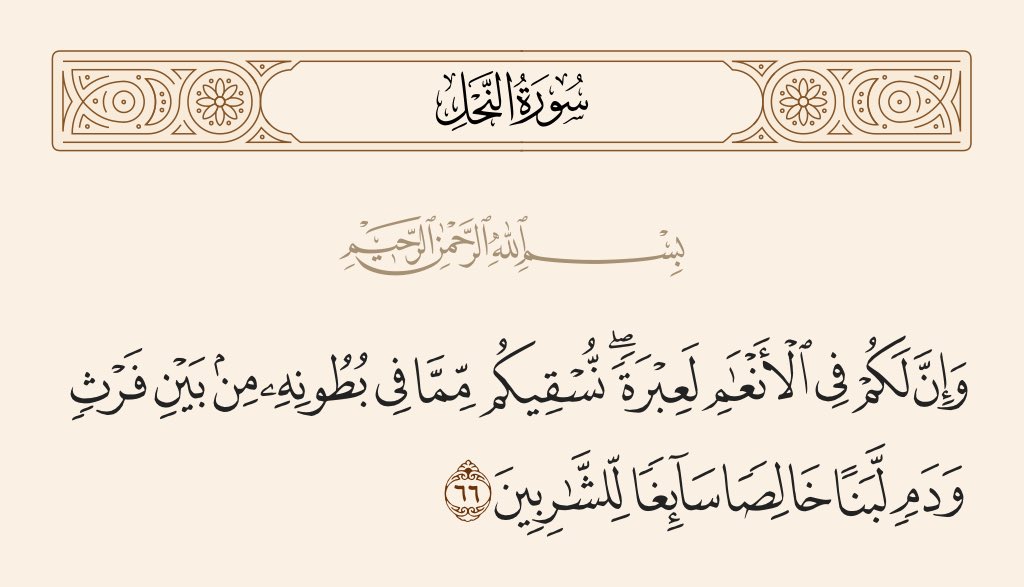 سُورَةُ النَّحْلِ
بِسْمِ ٱللَّهِ ٱلرَّحْمَٰنِ ٱلرَّحِيمِ
وَإِنَّ لَكُمْ فِى ٱلْأَنْعَٰمِ لَعِبْرَةًۖ نُّسْقِيكُم مِّمَّا فِى بُطُونِهِۦ مِنۢ بَيْنِ فَرْثٍ
وَدَمٍ لَّبَنًا خَالِصًا سَآئِغًا لِّلشَّٰرِبِينَ ٦٦